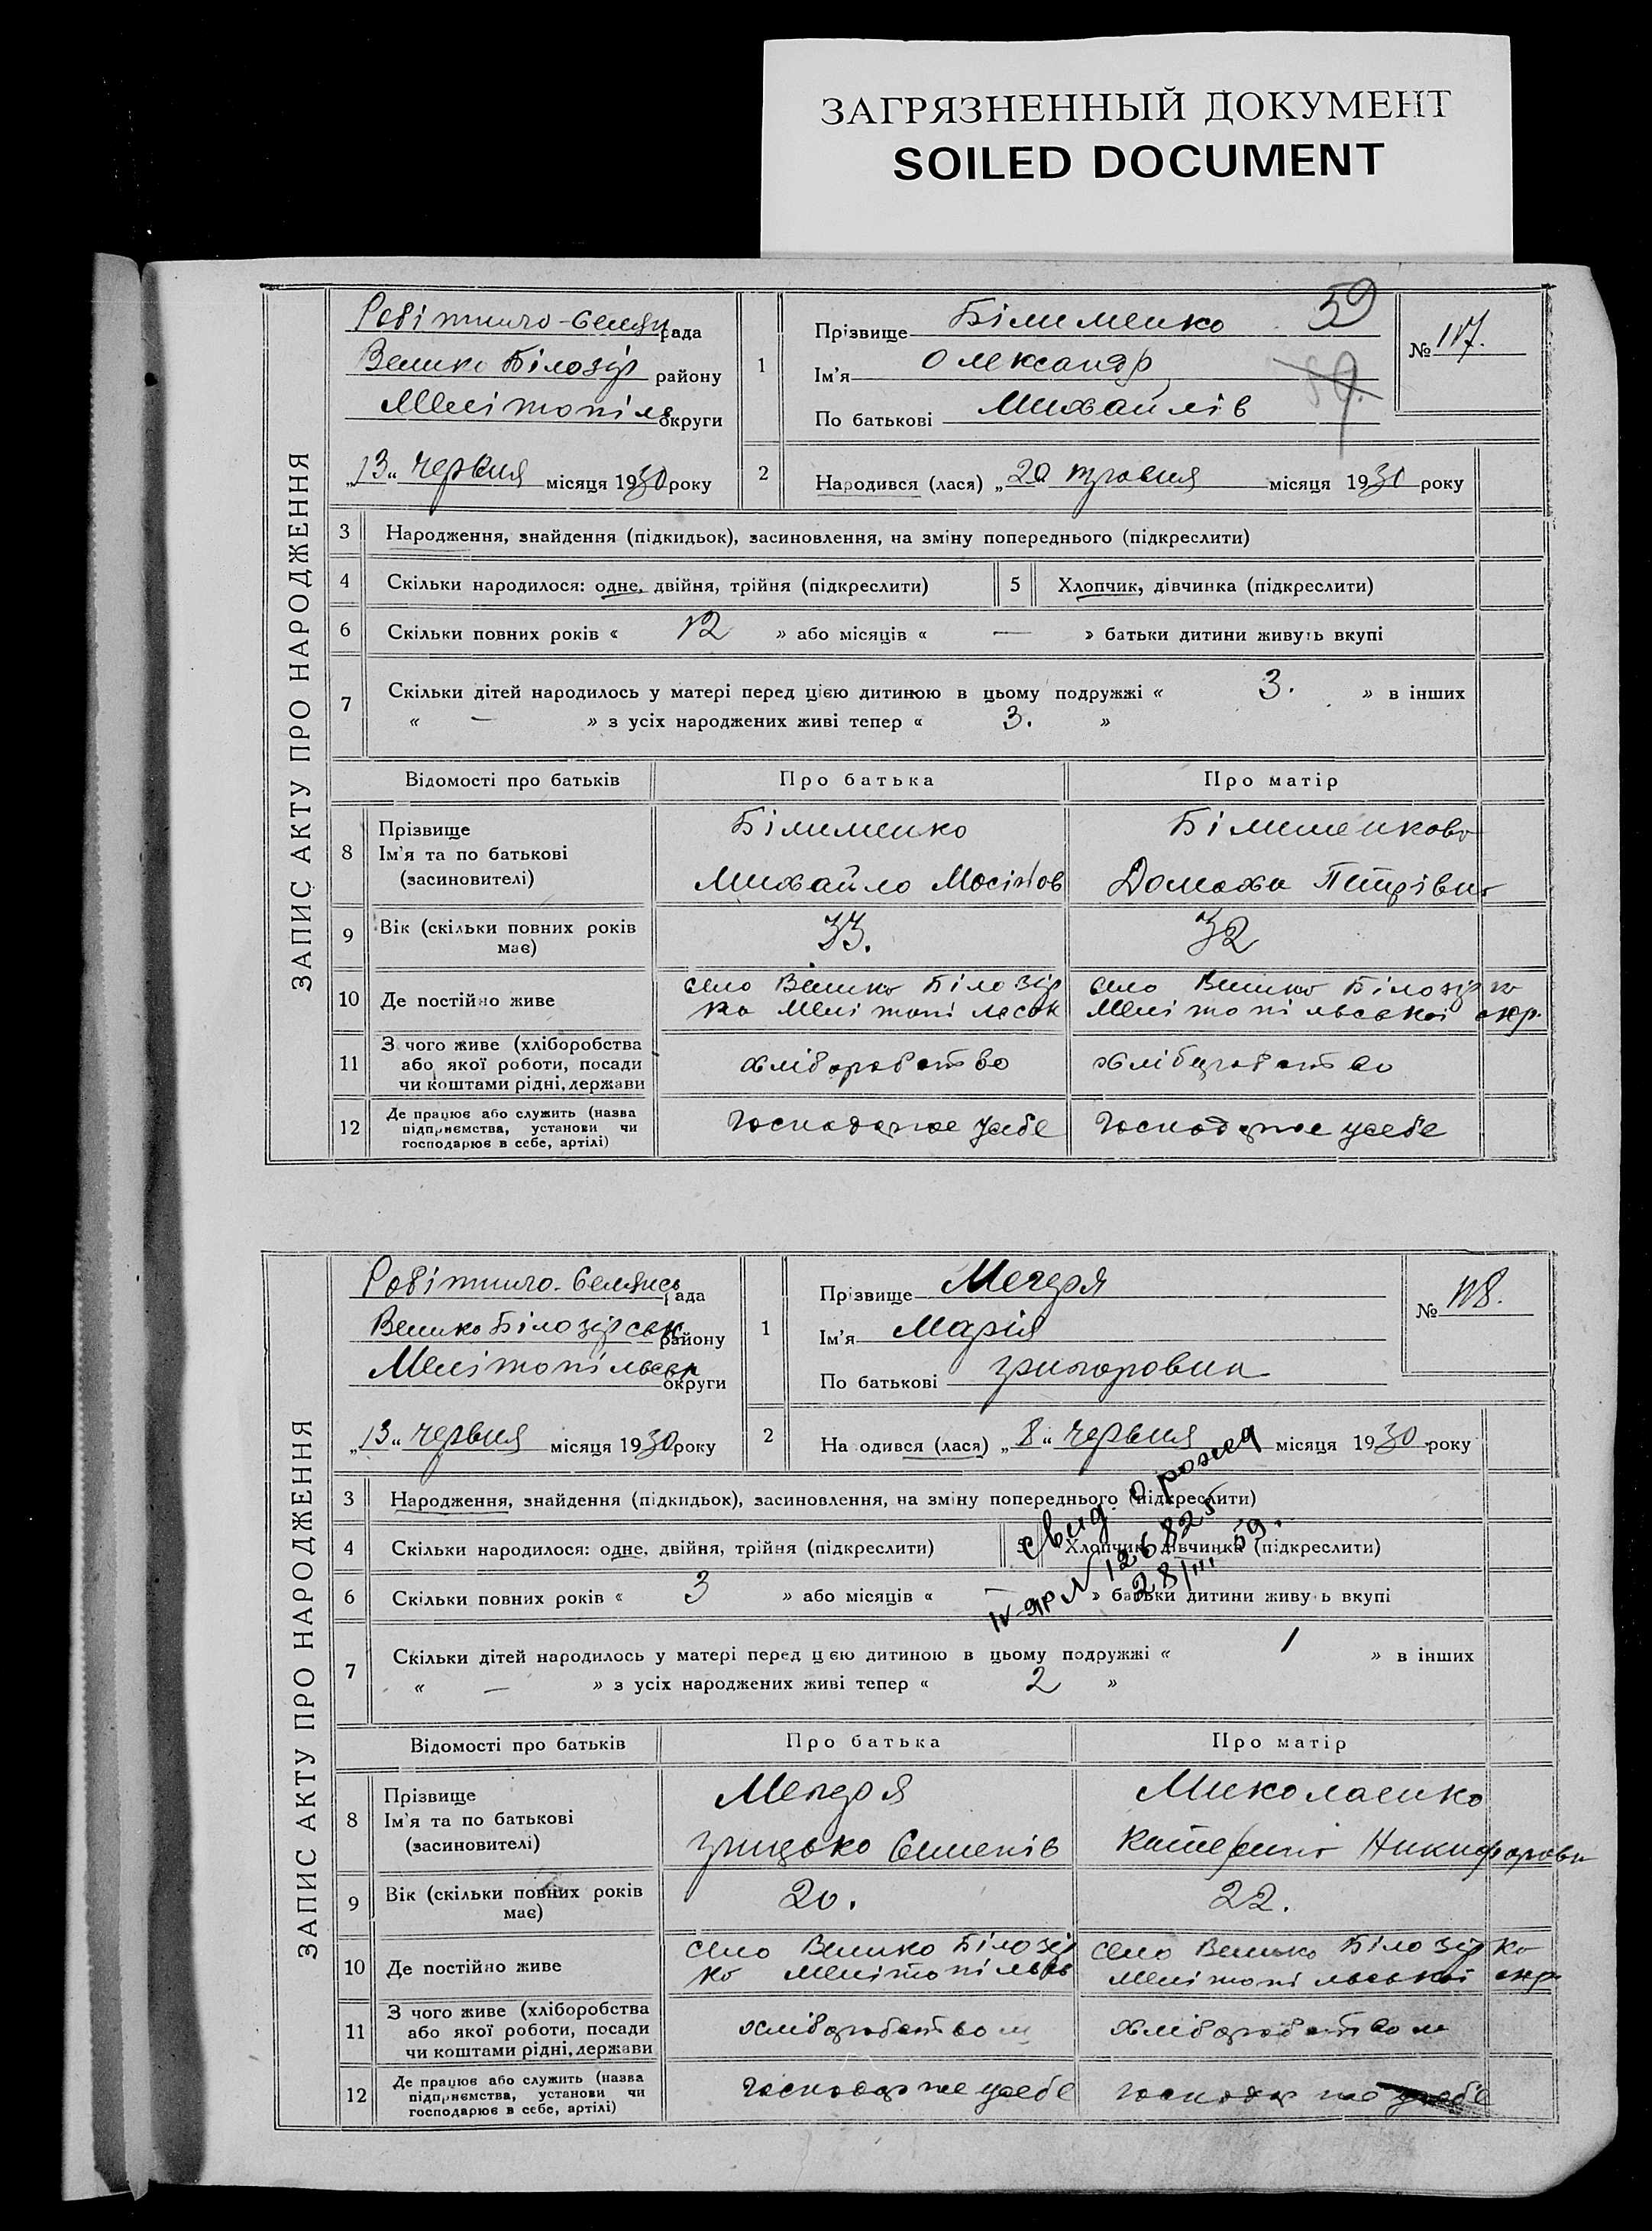 ЗАГРЯЗНЕННЫЙ ДОКУМЕНТ
SOILED DOCUMENT
ЗАПИС АКТУ ПРО НАРОДЖЕННЯ
рада
Велико Білозір району
Мелітопіль округи
„13“ червня місяця 1930 року
1
Прізвище Білименко
59
Ім'я Олександр
59.
По батькові Михайлів
№ 117.
2
Народився (лася) „20 травня місяця 1930 року
3 Народження, знайдення (підкидьок), засиновлення, на зміну попереднього (підкреслити)
4 Скільки народилося: одне, двійня, трійня (підкреслити) 5 Хлопчик, дівчинка (підкреслити)
6 Скільки повних років « 12 » або місяців « — » батьки дитини живуть вкупі
7 Скільки дітей народилось у матері перед цією дитиною в цьому подружжі « 3. » в інших
« — » з усіх народжених живі тепер « 3. »
Відомості про батьків Про батька Про матір
8 Прізвище Ім'я та по батькові (засиновителі)
Білименко Білименкова
Михайло Домаха Петрівна
9 Вік (скільки повних років має) 33. 32
10 Де постійно живе
село Велико Білозір село Велико Білозір ко
ка Мелітопільсок Мелітопільської окр.
11 З чого живе (хліборобства або якої роботи, посади чи коштами рідні, держави
хліборобство хліборобство
12 Де працює або служить (назва підприємства, установи чи господарює в себе, артілі)
Господарює усебе Господарює усебе
ЗАПИС АКТУ ПРО НАРОДЖЕННЯ
рада
Велико Білозірськ району
Мелітопільськ округи
„13“ червня місяця 1930 року
1
Прізвище Мегеря
Ім'я Марія
По батькові Григоровна
№ 118.
2
На одився (лася) „8“ червня місяця 1930 року
3 Народження, знайдення (підкидьок), засиновлення, на зміну попереднього (підкреслити)
4 Скільки народилося: одне, двійня, трійня (підкреслити) 5 Хлопчик, дівчинка (підкреслити)
свид. о рожд
IV-яр N 126825
28/III 59.
6 Скільки повних років « 3 » або місяців « — » батьки дитини живу ь вкупі
7 Скільки дітей народилось у матері перед ц єю дитиною в цьому подружжі « 1 » в інших
« — » з усіх народжених живі тепер « 2 »
Відомості про батьків Про батька Про матір
8 Прізвище Ім'я та по батькові (засиновителі)
Мегеря Миколаенко
Грицько Семенів Катерина Никифоровн
9 Вік (скільки повних років має) 20. 22.
10 Де постійно живе
село Велико Білозір село Велико Білозір ко
ко Мелітопільсь Мелітопільської окр.
11 З чого живе (хліборобства або якої роботи, посади чи коштами рідні, держави
хліборобством хліборобством
12 Де працює або служить (назва підприємства, установи чи господарює в себе, артілі)
Господарює усебе господарює усебе